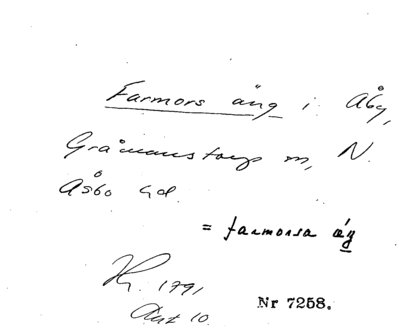 Farmors äng i Åby,
Gråmanstorp sn, N.
Åsbo hd.
= farmorsa
1791
Akt 10.
Nr 7258.